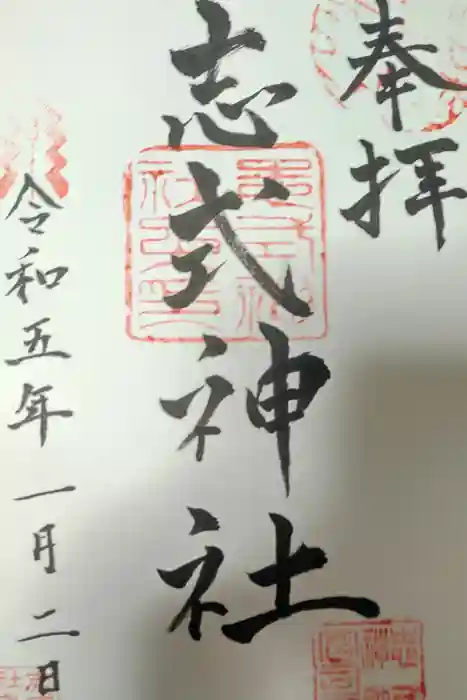 奉拝
志式神社
令和五年一月二日